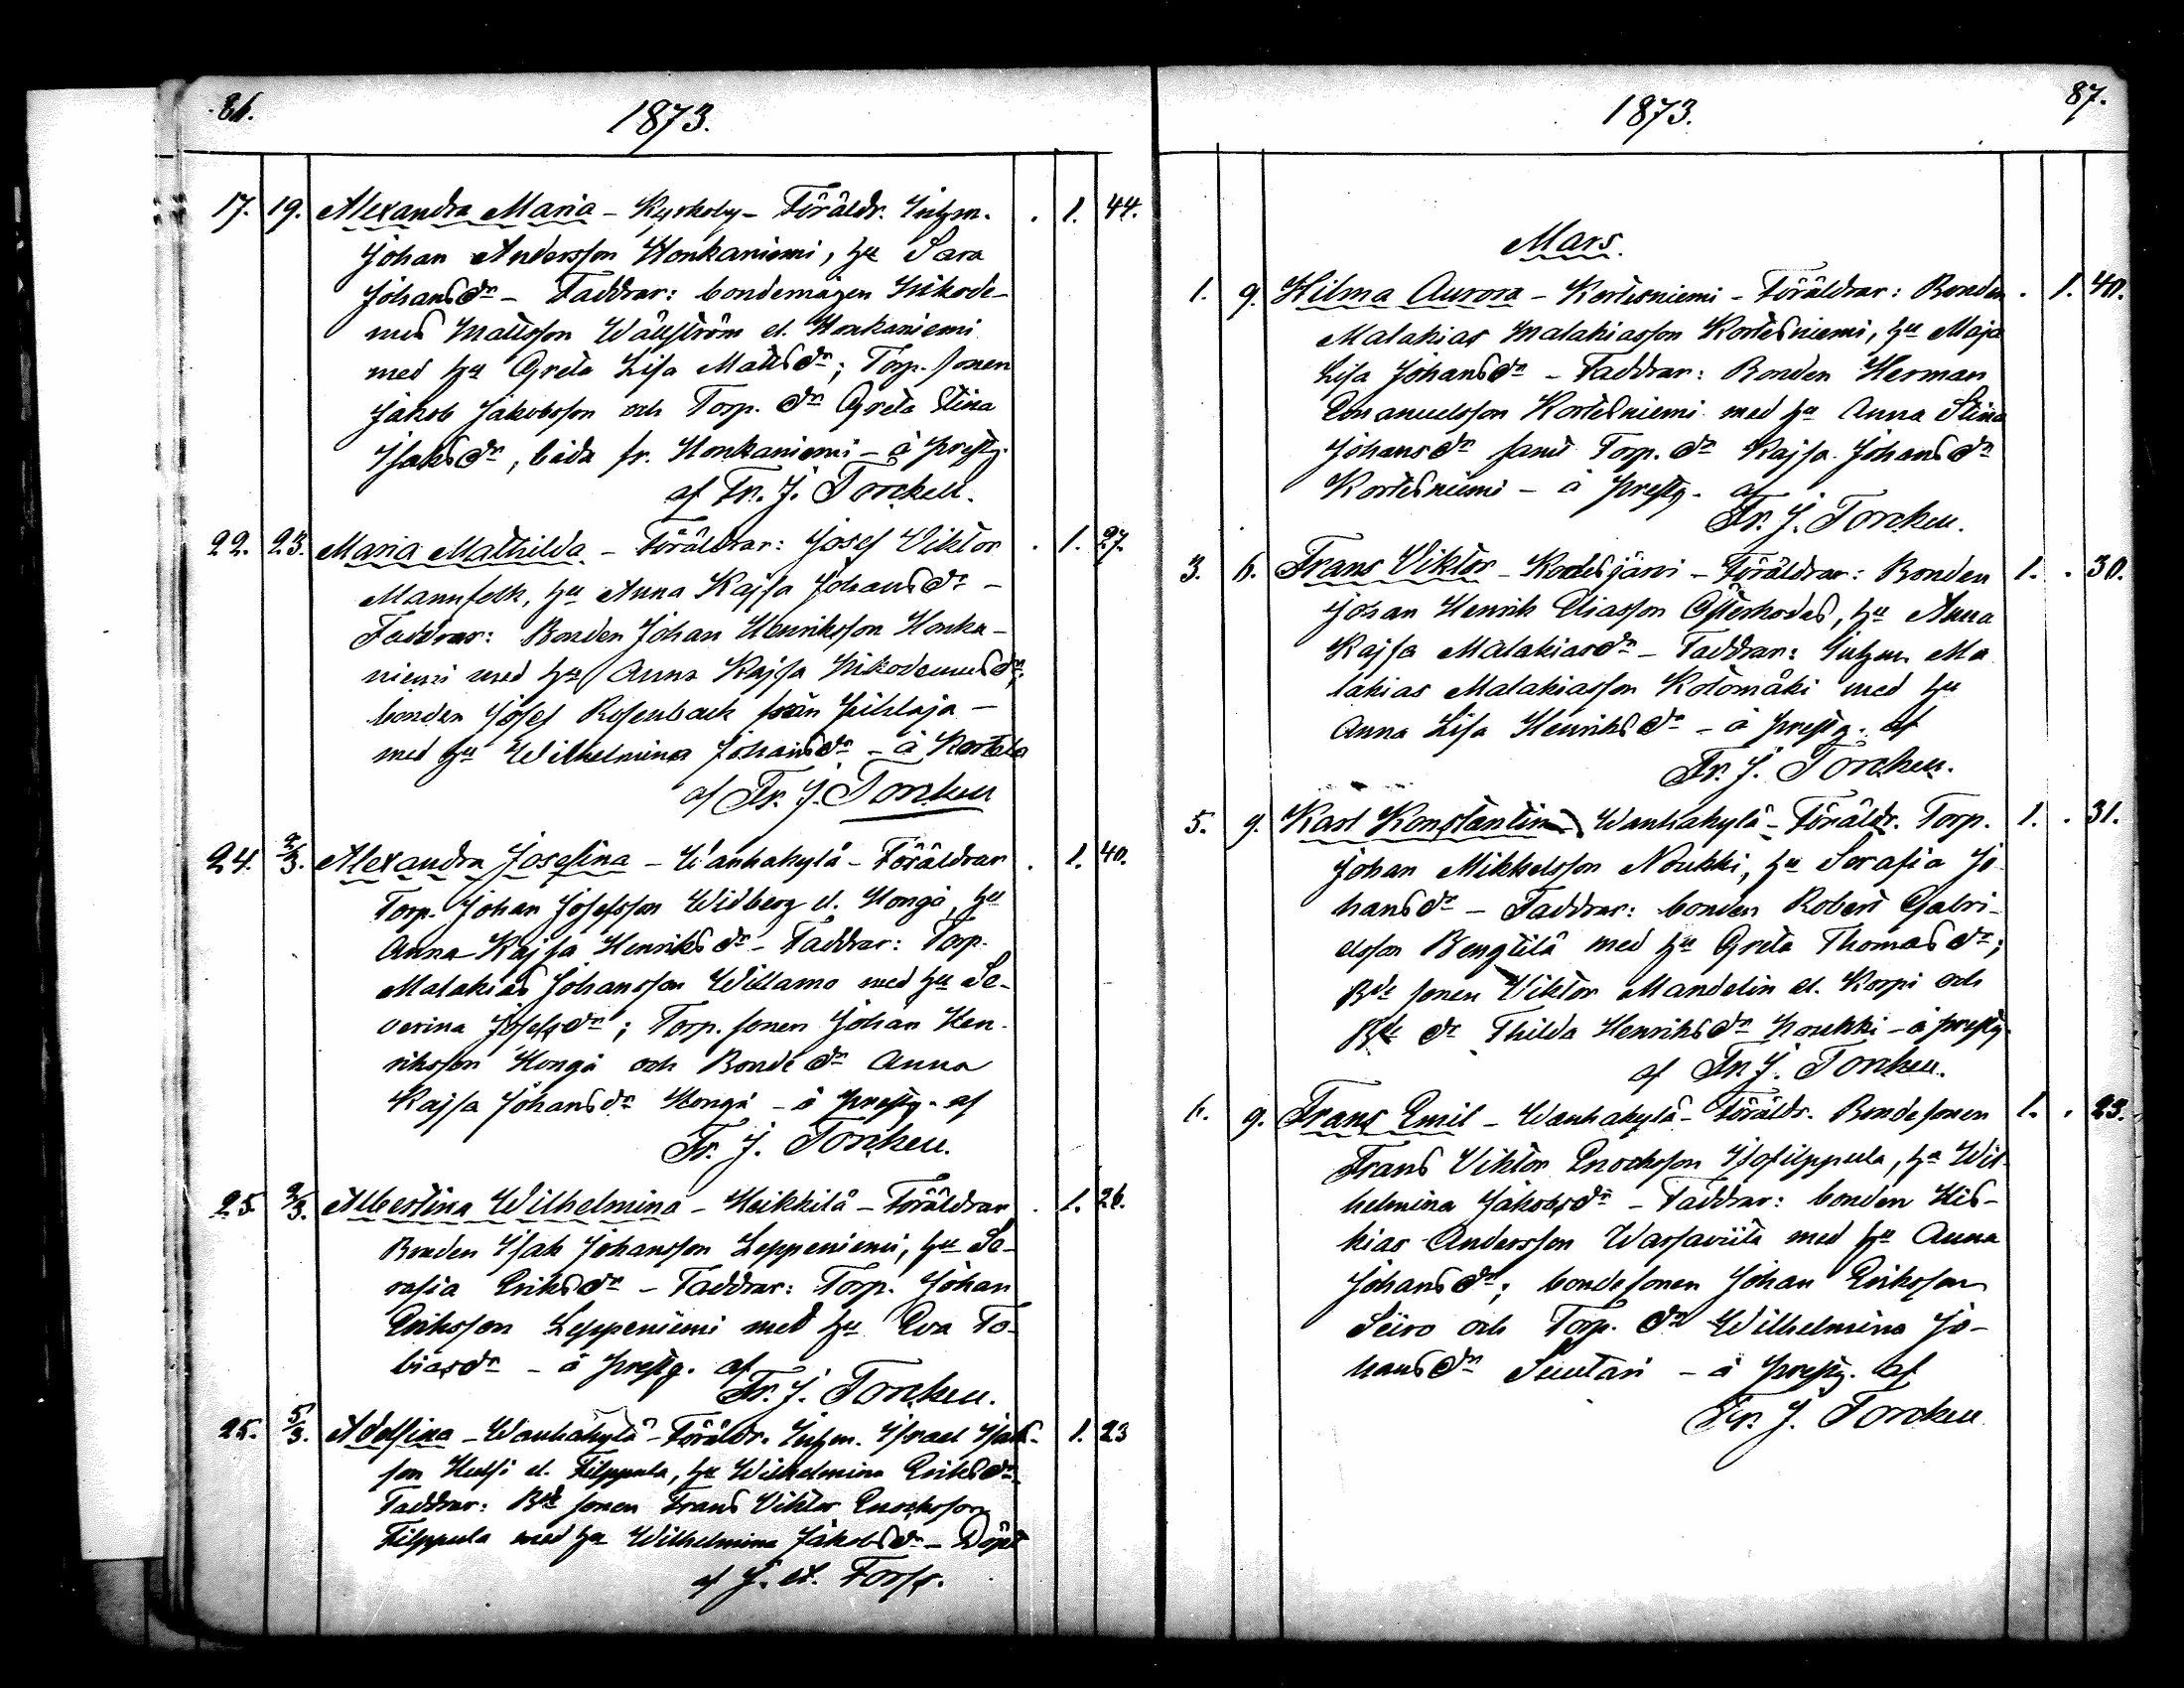 86.
1873.
17. 19. Alexandra Maria - Kyrkoby - Föräldr. Inhm. . 1. 44.
Johan Andersson Honkaniemi, hu Sara
Johansdr - Faddrar: bondemågen Nikode-
mus Mattsson Wallström el. Honkaniemi
med hu Greta Lisa Matsdr; Torp. sonen
Jakob Jakobsson och Torp. dr Greta Stina
Isaksdr, båda fr. Honkaniemi - å prestg.
af Fr. J. Torckell.
22. 23. Maria Mathilda - Föräldrar: Josef Viktor . 1. 27.
Mannfolk, hu Anna Kajsa Johansdr -
Faddrar: Bonden Johan Henriksson Honka-
niemi med hu Anna Kajsa Nikodemusdr;
bonden Josef Rosenback från Pihlaja -
med hu Wilhelmina Johansdr - å
af Fr. J. Torckell
24. 2/3. Alexandra Josefina - Wanhakylä - Föräldrar . 1. 40.
Torp. Johan Josefsson Widberg el. Hongå, hu
Anna Kajsa Henriksdr - Faddrar: Torp.
Malakias Johansson Willamo med hu Se-
verina Josefsdr; Torp. sonen Johan Hen-
riksson Hongå och Bonde dr Anna
Kajsa Johansdr Hongå - å prestg. af
Fr. J. Torckell.
25. 2/3. Albertina Wilhelmina - Heikkilä - Föräldrar . 1. 26.
Bonden Isak Johansson Leppeniemi, hu Se-
rafia Eriksdr - Faddrar: Torp. Johan
Eriksson Leppeniemi med hu Eva To-
biasdr - å prestg. af
Fr. J. Torckell.
25. 5/3. Adolfina - Wanhakylä - Föräldr. Inhm. Israel Isak- . 1. 23
son el. Filppula, hu Wilhelmina Eriksdr
Faddrar: Bde sonen Frans Viktor Enocksson
Filppula med hu Wilhelmina Jakobsdr - Döpt
af J. A. Forss.
87.
1873.
Mars.
1. 9. Hilma Aurora - Kortesniemi - Föräldrar: Bonden . 1. 40.
Malakias Malakiasson Kortesniemi, hu Maja
Lisa Johansdr - Faddrar: Bonden Herman
Emanuelsson Kortesniemi med hu Anna Stina
Johansdr samt Torp. dr Kajsa Johansdr
Kortesniemi - å prestg. af
Fr. J. Torckell.
3. 6. Frans Viktor - Kortesjärvi - Föräldrar: Bonden 1. . 30.
Johan Henrik Eliasson, hu Anna
Kajsa Malakiasdr - Faddrar: Inhm. Ma
lakias Malakiasson Kotomäki med hu
Anna Lisa Henriksdr - å prestg. af
Fr. J. Torckell.
5. 9. Karl Konstantin - Wanhakylä - Föräldr. Torp. 1. . 31.
Johan Mikkelsson Noukki, hu Serafia Jo
hansdr - Faddrar: bonden Robert Gabri-
elsson Bengtilä med hu Greta Thomasdr;
Bde sonen Viktor Mandelin el. Korpi och
Bde dr Thilda Henriksdr Noukki - å prestg.
af Fr. J. Torckell.
6. 9. Frans Emil - Wanhakylä - Föräldr. Bondesonen 1. . 23.
Frans Viktor Enocksson Isofilppula, hu Wil-
helmina Jakobsdr - Faddrar: bonden His-
kias Andersson Warsaviita med hu Anna
Johansdr; bondesonen Johan Eriksson
och Torp. dr Wilhelmina Jo-
hansdr Suutari - å prestg. af
Fr. J. Torckell